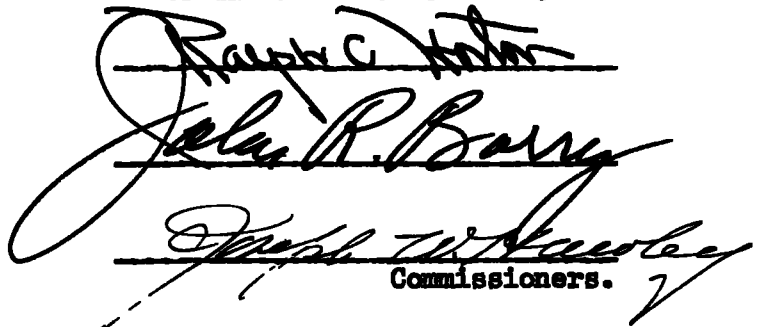 Ralph C Horton
John R. Barry
Joseph W. Hawley
Commissioners.